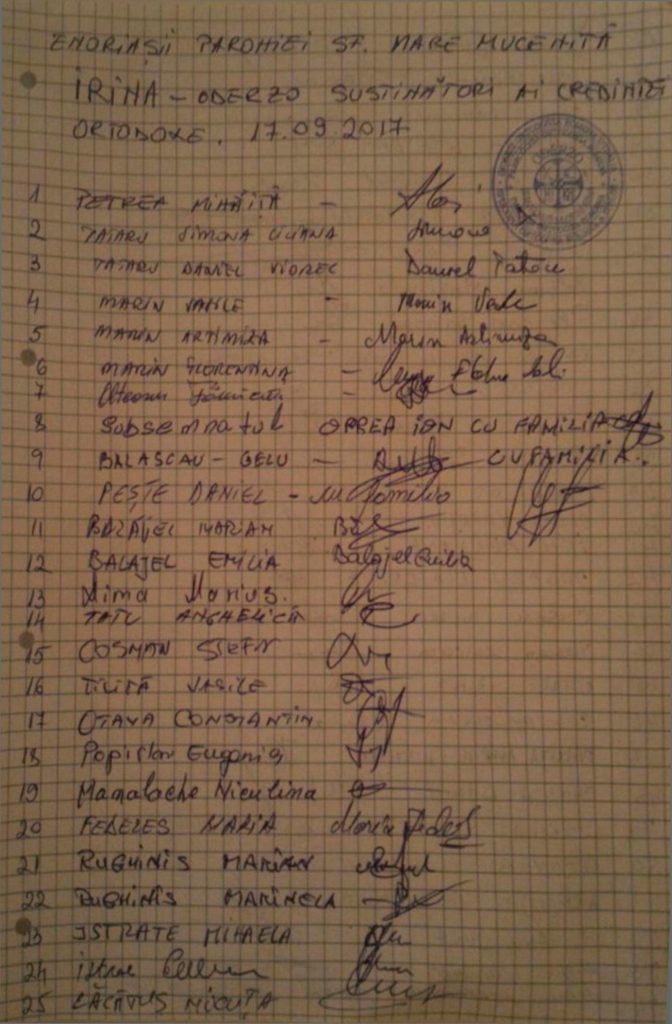 ENORIAȘII PAROHIEI SF. MARE MUCENIȚĂ
IRINA – ODERZO SUSTINĂTORI AI CREDINTEI
ORTODOXE. 17.09.2017
1 PETREA MIHĂIȚĂ –
2 TATARU SIMONA LILIANA Simona
3 TATARU DANIEL VIOREL Daniel Tataru
4 MARIN VASILE – Marin Vasile
5 MARIN ARTIMIZA – Marin Artimiza
6 MARIN FLORENTINA –
7
8 Subsemnatul OPREA ION CU FAMILIA
9 BALASCAU – GELU – CU FAMILIA.
10 PEȘTE DANIEL – cu familia
11 BALAJEL MARIAN
12 BALAJEL EMILIA Balajel Emilia
13 Dima Marius.
14 TATU ANGHELICA
15 COSMAN ȘTEFN
16 VASILE
17 OTAVA CONSTANTIN
18 Eugenia
19 Manalache Niculina
20 FEDELES MARIA Maria Fedeles
21 RUGHINIS MARIAN
22 RUGHINIS MARINELA –
23 ISTRATE MIHAELA
24
25 LĂCĂTUȘ NICUȚA